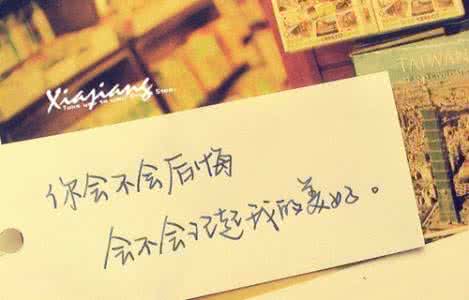 Xiajiang
TAIWAN
你会不会后悔
会不会记起我的美好。